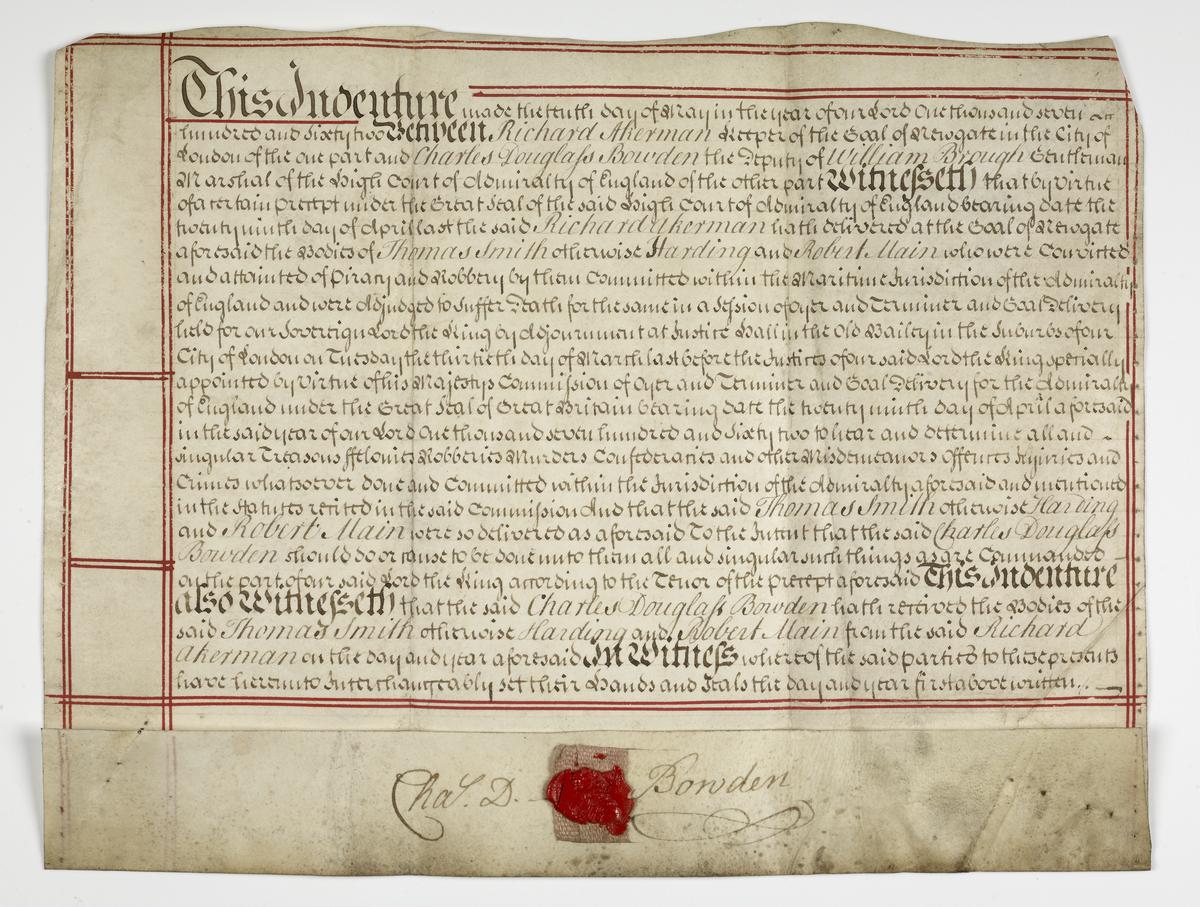 This Indenture made the tenth day of May in the year of our Lord One thousand seven
hundred and Sixty two Between Richard Akerman Keeper of the Goal of Newgate in the City of
London of the one part and Charles Douglass Bowden the Deputy of William Brough Gentleman
Marshal of the High Court of Admiralty of England of the other part Witnesseth that by Virtue
of a certain Precept under the Great Seal of the said High Court of Admiralty of England bearing date the
twenty ninth day of April last the said Richard Akerman hath delivered at the Goal of Newgate
aforesaid the Bodies of Thomas Smith otherwise Harding and Robert Main who were Convicted
and attainted of Piracy and Robbery by them Committed within the Maritime Jurisdiction of the Admiralty
of England and were Adjudged to Suffer Death for the same in a Session of Oyer and Terminer and Goal Delivery
held for our Sovereign Lord the King by Adjournment at Justice Hall in the Old Bailey in the Suburbs of our
City of London on Tuesday the thirtieth day of March last before the Justices of our said Lord the King specially
appointed by Virtue of his Majestys Commission of Oyer and Terminer and Goal Delivery for the Admiralty
of England under the Great Seal of Great Britain bearing date the twenty ninth day of April aforesaid
in the said year of our Lord One thousand seven hundred and Sixty two to hear and determine all and
singular Treasons ffelonies Robberies Murders Confederacies and other Misdemeanors Offences Injuries and
Crimes whatsoever done and Committed within the Jurisdiction of the Admiralty aforesaid and mentioned
in the Statutes recited in the said Commission And that the said Thomas Smith otherwise Harding
and Robert Main were so delivered as aforesaid To the Intent that the said Charles Douglass
Bowden should do or cause to be done unto them all and singular such things as are Commanded
on the part of our said Lord the King according to the Tenor of the Precept aforesaid This Indenture
also Witnesseth that the said Charles Douglass Bowden hath received the Bodies of the
said Thomas Smith otherwise Harding and Robert Main from the said Richard
Akerman on the day and year aforesaid In Witness whereof the said parties to these presents
have hereunto Interchangeably set their Hands and Seals the day and year first above written
Chas. D. Bowden